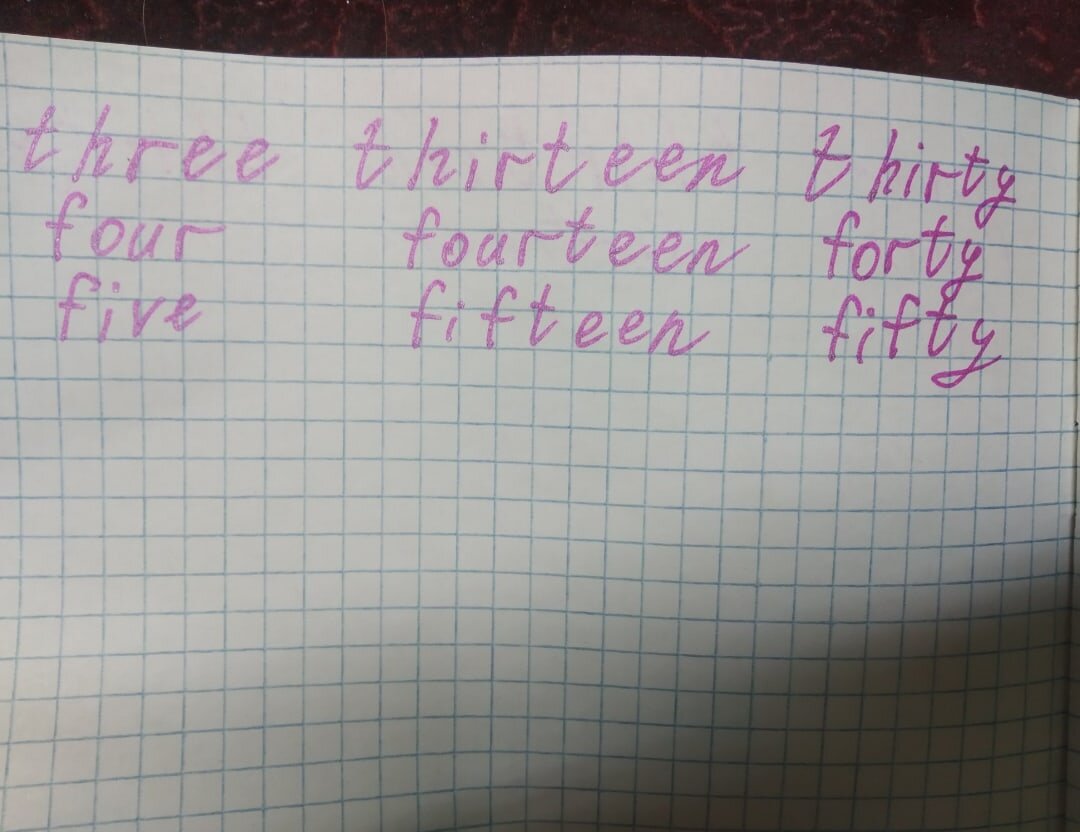 three thirteen thirty
four fourteen forty
five fifteen fifty